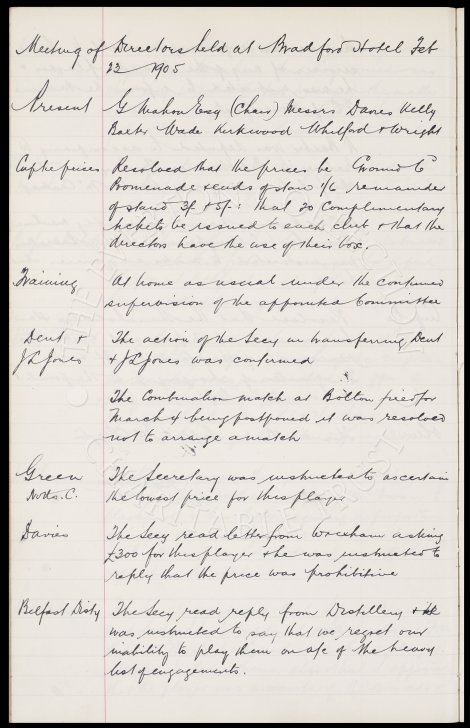 Meeting of Directors held at Bradford Hotel Feb
22 1905
Present G Mahon Esq (Chair) Messrs Davies Kelly
Baxter Wade Kirkwood Whitford & Wright
Cuptie prices Resolved that the prices be Ground 6d
Promenade &ends of stand 1/6 remainder
of stand 3/- & 5/-: that 20 Complimentary
tickets be issued to each club & that the
directors have the use of their box.
Training At home as usual under the continued
supervision of the appointed Committee
Dent & The action of the Secy in transferring Dent
J L Jones & J L Jones was confirmed
The Combination match at Bolton fixed for
March 4 being postponed it was resolved
not to arrange a match
Green The Secretary was instructed to ascertain
Notts. C. the lowest price for this player
Davies The Secy read letter from Wrexham asking
£300 for this player & he was instructed to
reply that the price was prohibitive
Belfast Disty The Secy read reply from Distillery &
was instructed to say that we regret our
inability to play them on a/c of the heavy
list of engagements.